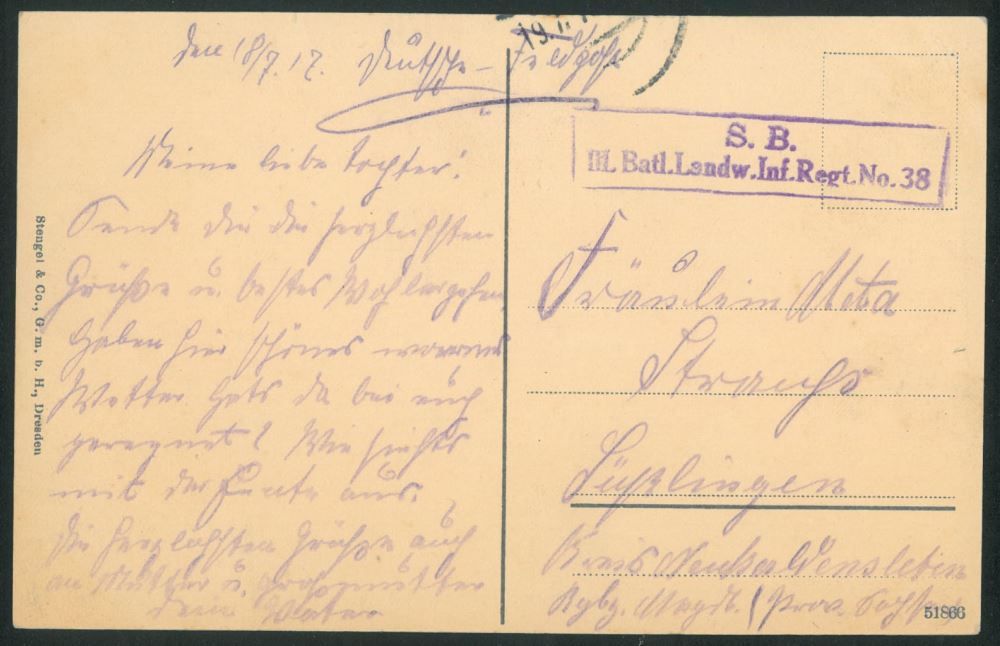 den 18/7.17. Deutsche - Feldpost
19.7.1
Meine liebe Tochter!
Sende dir die herzlichsten
Grüße u. bestes Wohlergehen,
Haben hier schönes warmes
Wetter hats da bei euch
geregnet? Wie siehts
mit der Ernte aus.
Die herzlichsten Grüße auch
an Mutter u. Großmutter
Dein Vater
S. B.
III. Batl. Landw. Inf. Regt. No. 38
Fräulein Meta
Süpplingen
Kreis Neuhaldensleben
Rgbz. Magdb. (Prov. Sachsen
Stengel & Co., G. m. b. H., Dresden
51866